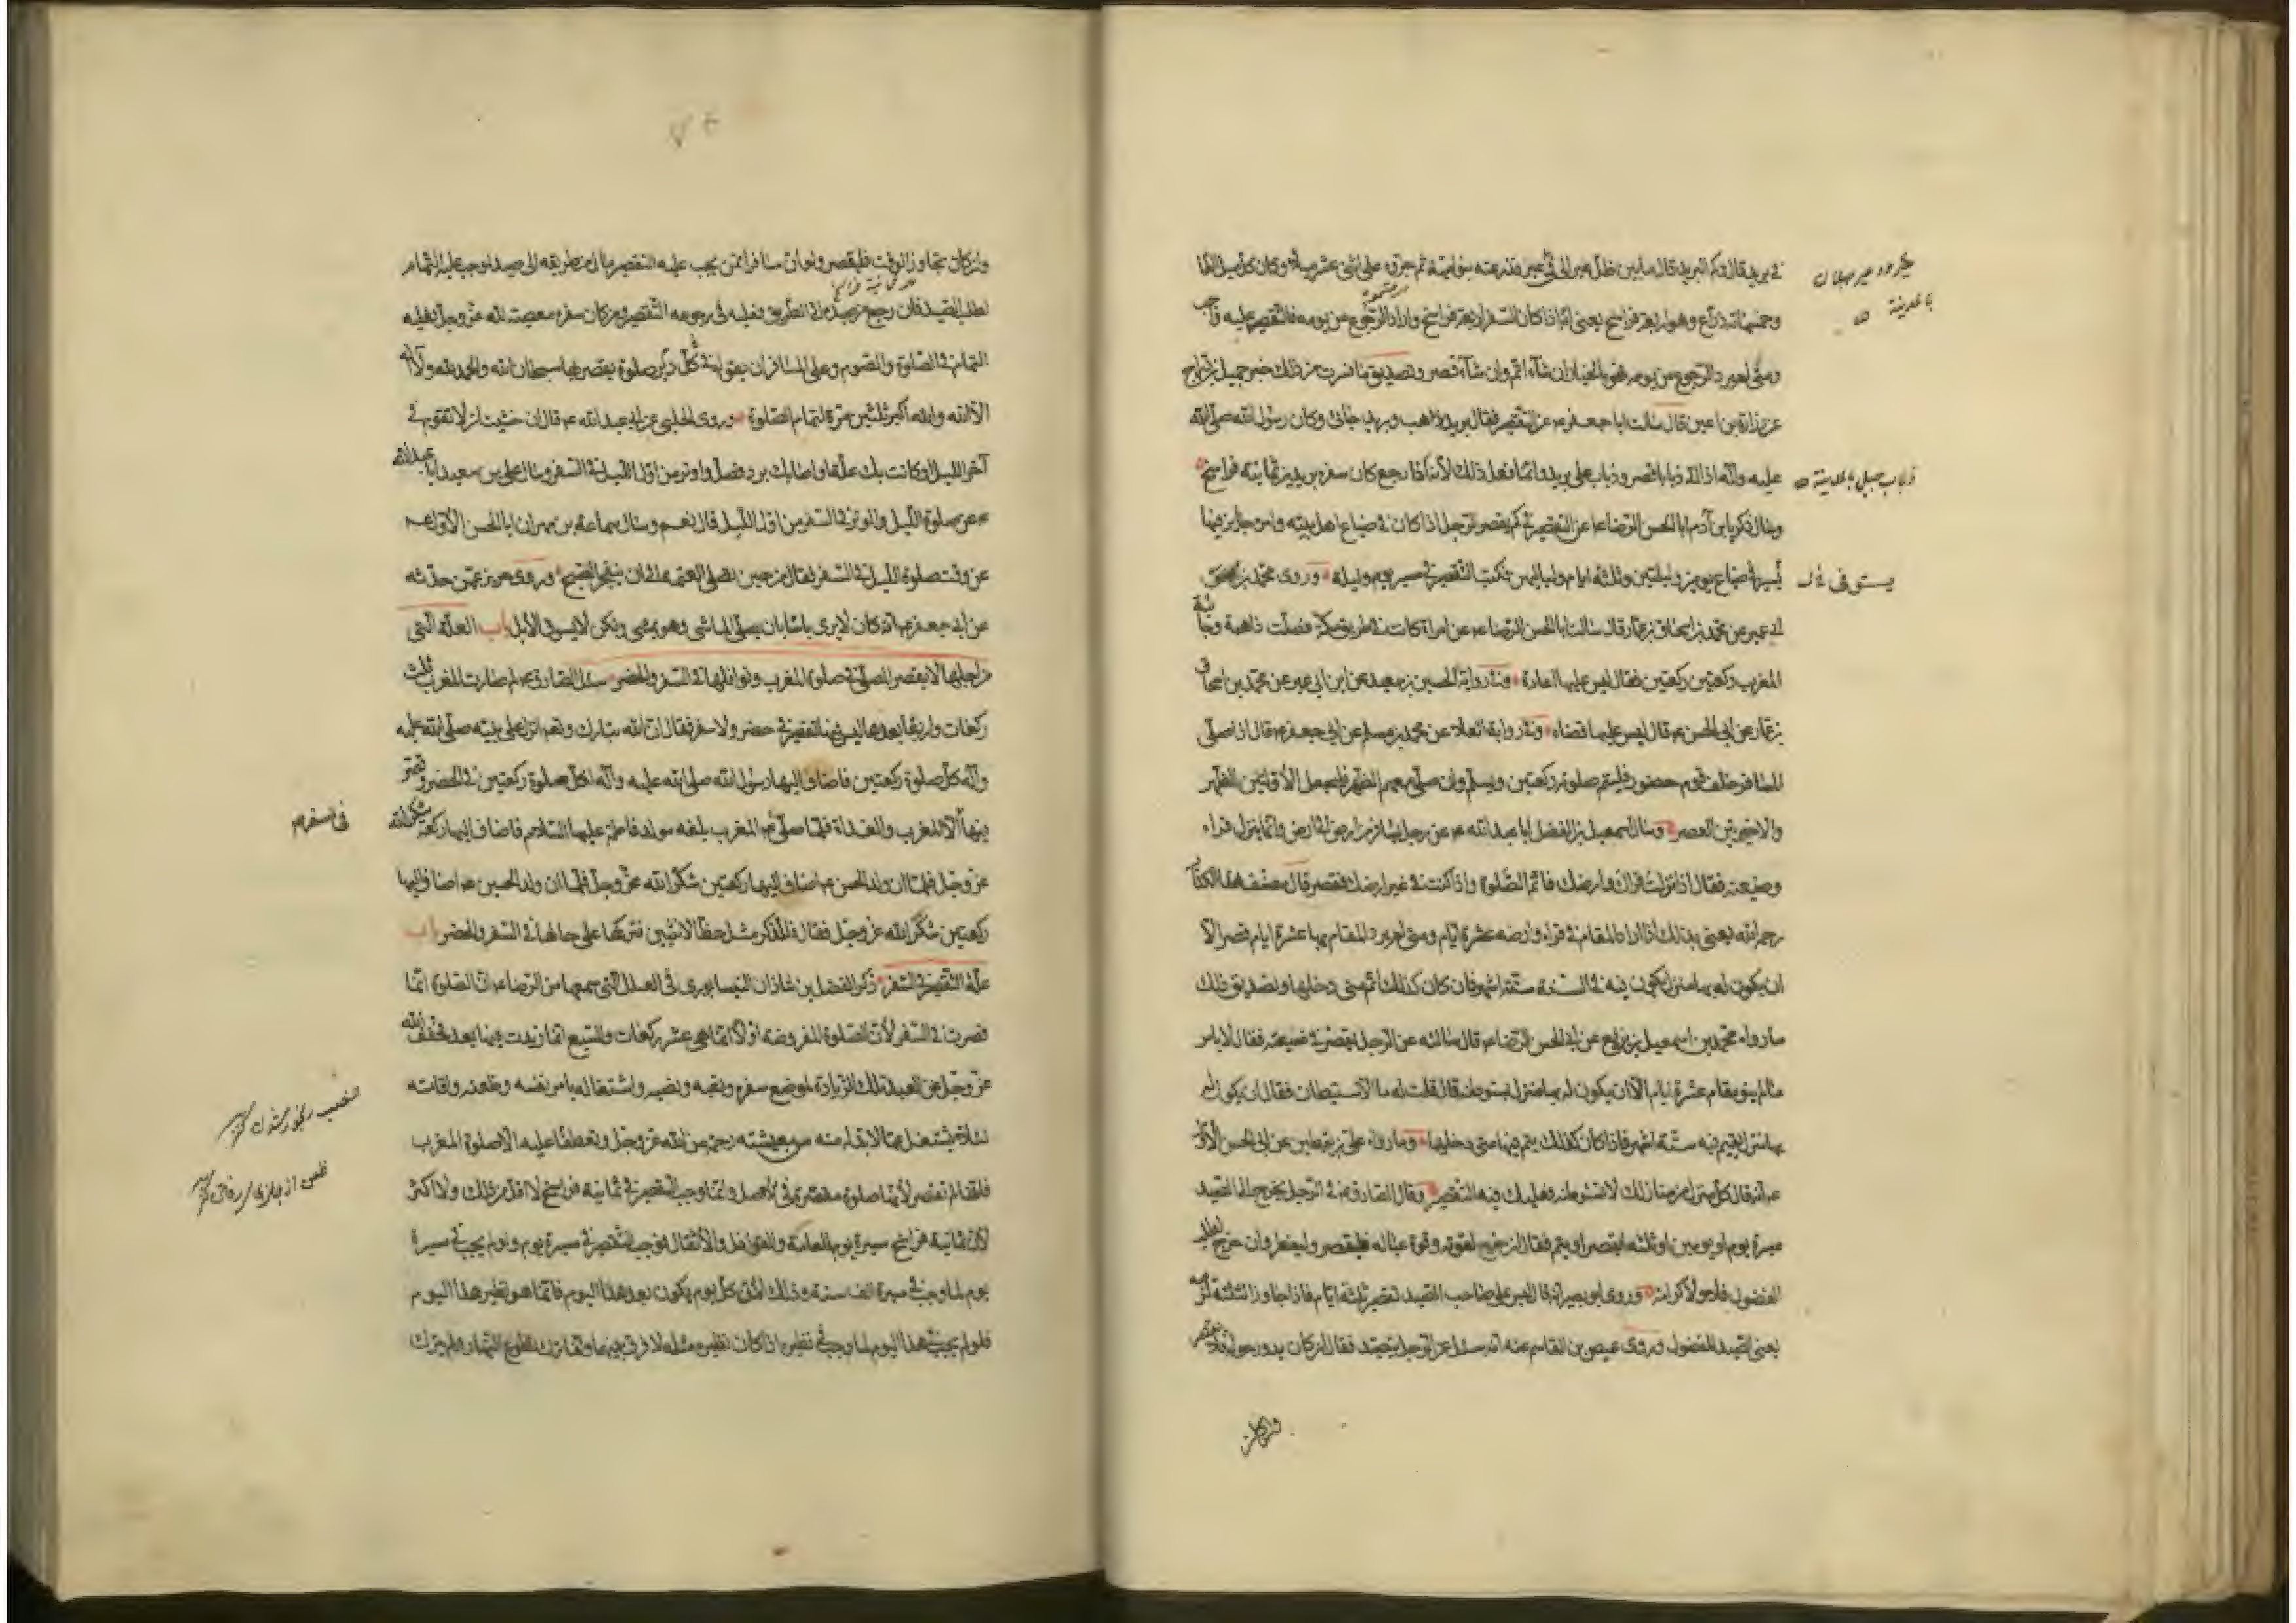 في بريد قال وكم البريد قال ما بين ظل عير إلى فيء وعير فذرعته بنو أمية ثم جزوه على اثني عشر ميلا وكان كل ميل الفا
وخمسمائة ذراع وهو أربعة فراسخ يعني انه اذا كان السفر اربعة فراسخ واراد الرجوع من يومه فالتقصير عليه واجب
ومتى لم يرد الرجوع من يومه فهو بالخيار ان شاء اتم وان شاء قصر وتصديق ما فسرت من ذلك خبر جميل بن دراج
عن زرارة بن اعين قال سالت ابا جعفر ع عن التقصير فقال بريد ذاهب وبريد جائي وكان رسول الله صلى الله
عليه وآله اذا اتى ذبابا قصر وذباب على بريد وانما فعل ذلك لأنه اذا رجع كان سفره بريدين ثمانية فراسخ
وسال زكريا بن آدم ابا الحسن الرضا ع عن التقصير في كم يقصر الرجل اذا كان في ضياع اهل بيته وامره جايز فيها
يسير في الضياع يومين وليلتين وثلثة ايام ولياليهن فكتب التقصير في مسير يوم وليلة وروى محمد بن
ابي عمير عن محمد بن اسحاق بن عمار قال سالت ابا الحسن الرضا ع عن امراة كانت في طريق مكة فصلت ذاهبة وجائية
المغرب ركعتين ركعتين فقال ليس عليها اعادة وفي رواية الحسين بن سعيد عن ابن ابي عمير عن محمد بن اسحاق
بن عمار عن ابي الحسن ع قال ليس عليها قضاء وفي رواية العلاء عن محمد بن مسلم عن ابي جعفر ع قال اذا صلى
المسافر خلف قوم حضور فليتم صلوته ركعتين ويسلم وان صلى معهم الظهر فليجعل الأولتين الظهر
والاخيرتين العصر وسال اسمعيل بن الفضل ابا عبد الله ع عن رجل يسافر من ارض الى ارض وانما ينزل قراه
وضيعته فقال اذا نزلت قراك وارضك فاتم الصلوة واذا كنت في غير ارضك فقصر قال مصنف هذا الكتاب
رحمه الله يعني بذلك اذا اراد المقام في قراه وارضه عشرة ايام ومتى لم يرد المقام بها عشرة ايام قصر الا
ان يكون له بها منزل يكون فيه في السنة ستة اشهر فان كان كذلك اتم متى دخلها وتصديق ذلك
ما رواه محمد بن اسمعيل بن بزيع عن ابي الحسن الرضا ع قال سالته عن الرجل يقصر في ضيعته فقال لا باس
ما لم ينو مقام عشرة ايام الا ان يكون له بها منزل يستوطنه قال قلت له ما الاستيطان فقال ان يكون له
بها منزل يقيم فيه ستة اشهر فاذا كان كذلك يتم فيها متى دخلها وما رواه علي بن يقطين عن ابي الحسن الأول
ع انه قال كل منزل من منازلك لا تستوطنه فعليك فيه التقصير وقال الصادق ع في الرجل يخرج الى الصيد
مسيرة يوم او يومين او ثلثة ايقصر او يتم فقال ان خرج لقوته وقوة عياله فليقصر وليفطر وان خرج لطلب
الفضول فلا ولا كرامة وروى ابو بصير انه قال ليس على صاحب الصيد تقصير ثلثة ايام فاذا جاوز الثلثة لزمه
يعني الصيد للفضول وروى عيص بن القاسم عنه انه سئل عن الرجل يتصيد فقال ان كان يدور حوله فلا يقصر
وان كان تجاوز الوقت فليقصر ولو ان مسافرا ممن يجب عليه التقصير مال من طريقه الى صيد لوجب عليه التمام
لطلب الصيد فان رجع من صيده الى الطريق فعليه في رجوعه التقصير ومن كان سفره معصية لله عز وجل فعليه
التمام في الصلوة والصوم وعلى المسافر ان يقول في دبر كل صلوة يقصر بها سبحان الله والحمد لله ولا اله
الا الله والله اكبر ثلثين مرة لتمام الصلوة وروى الحلبي عن ابي عبد الله ع قال ان خشيت ان لا تقوم في
آخر الليل او كانت بك علة او اصابك برد فصل واوتر من اول الليل في السفر وسال علي بن سعيد ابا عبد الله
ع عن صلوة الليل والوتر في السفر من اول الليل قال نعم وسال سماعة بن مهران ابا الحسن الأول ع
عن وقت صلوة الليل في السفر فقال من حين تصلي العتمة الى ان ينفجر الصبح وروى حريز عمن حدثه
عن ابي جعفر ع انه كان لا يرى باسا بان يصلي الماشي وهو يمشي ولكن لا يسوق الابل باب العلة التي
من اجلها لا يقصر المصلي في صلوة المغرب ونوافلها في السفر والحضر سئل الصادق ع لم صارت المغرب ثلث
ركعات واربعا بعدها ليس فيها تقصير في حضر ولا سفر فقال ان الله تبارك وتعالى انزل على نبيه صلى الله عليه
وآله كل صلوة ركعتين فاضاف اليها رسول الله صلى الله عليه وآله لكل صلوة ركعتين في الحضر وقصر
فيها الا المغرب والغداة فلما صلى ع المغرب بلغه مولد فاطمة عليها السلام فاضاف اليها ركعة شكرا لله
عز وجل فلما ان ولد الحسن ع اضاف اليها ركعتين شكرا لله عز وجل فلما ان ولد الحسين ع اضاف اليها
ركعتين شكرا لله عز وجل فقال للذكر مثل حظ الانثيين فتركها على حالها في السفر والحضر باب
علة التقصير في السفر ذكر الفضل بن شاذان النيسابوري في العلل التي سمعها من الرضا ع ان الصلوة انما
قصرت في السفر لأن الصلوة المفروضة اولا انما هي عشر ركعات والسبع انما زيدت فيها بعد فخفف الله
عز وجل عن العبد تلك الزيادة لموضع سفره وتعبه ونصبه واشتغاله بامر نفسه وظعنه واقامته
لئلا يشتغل عما لا بد له منه من معيشته رحمة من الله عز وجل وتعطفا عليه الا صلوة المغرب
فانها لم تقصر لأنها صلوة مقصرة في الأصل وانما وجب التقصير في ثمانية فراسخ لا اقل من ذلك ولا اكثر
لأن ثمانية فراسخ مسيرة يوم للعامة والقوافل والأثقال فوجب التقصير في مسيرة يوم ولو لم يجب في مسيرة
يوم لما وجب في مسيرة الف سنة وذلك لأن كل يوم يكون بعد هذا اليوم فانما هو نظير هذا اليوم
فلو لم يجب في هذا اليوم لما وجب في نظيره اذ كان نظيره مثله لا فرق بينهما وانما ترك تطوع النهار ولم يترك
ذباب جبل بالمدينة
في سفرهم